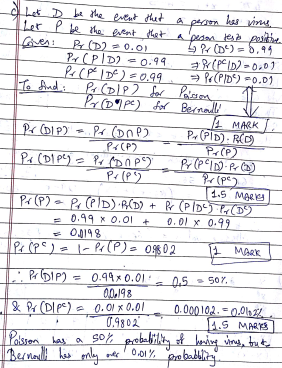 c) Let D be the event that a person has virus
Let P be the event that a person tests positive
Given: Pr(D) = 0.01 ↳ Pr(Dᶜ) = 0.99
Pr(P|D) = 0.99 ⇒ Pr(Pᶜ|D) = 0.01
Pr(Pᶜ|Dᶜ) = 0.99 ⇒ Pr(P|Dᶜ) = 0.01
To find: Pr(D|P) for Poisson
Pr(D|Pᶜ) for Bernoulli
1 MARK
Pr(D|P) = Pr(D∩P) / Pr(P) = Pr(P|D)·Pr(D) / Pr(P)
Pr(D|Pᶜ) = Pr(D∩Pᶜ) / Pr(Pᶜ) = Pr(Pᶜ|D)·Pr(D) / Pr(Pᶜ)
1.5 MARKS
Pr(P) = Pr(P|D)·Pr(D) + Pr(P|Dᶜ)·Pr(Dᶜ)
= 0.99 × 0.01 + 0.01 × 0.99
= 0.0198
Pr(Pᶜ) = 1 - Pr(P) = 0.9802
1 MARK
∴ Pr(D|P) = 0.99 × 0.01 / 0.0198 = 0.5 = 50%
& Pr(D|Pᶜ) = 0.01 × 0.01 / 0.9802 = 0.000102 = 0.0102%
1.5 MARKS
Poisson has a 50% probability of having virus, but
Bernoulli has only over 0.01% probability